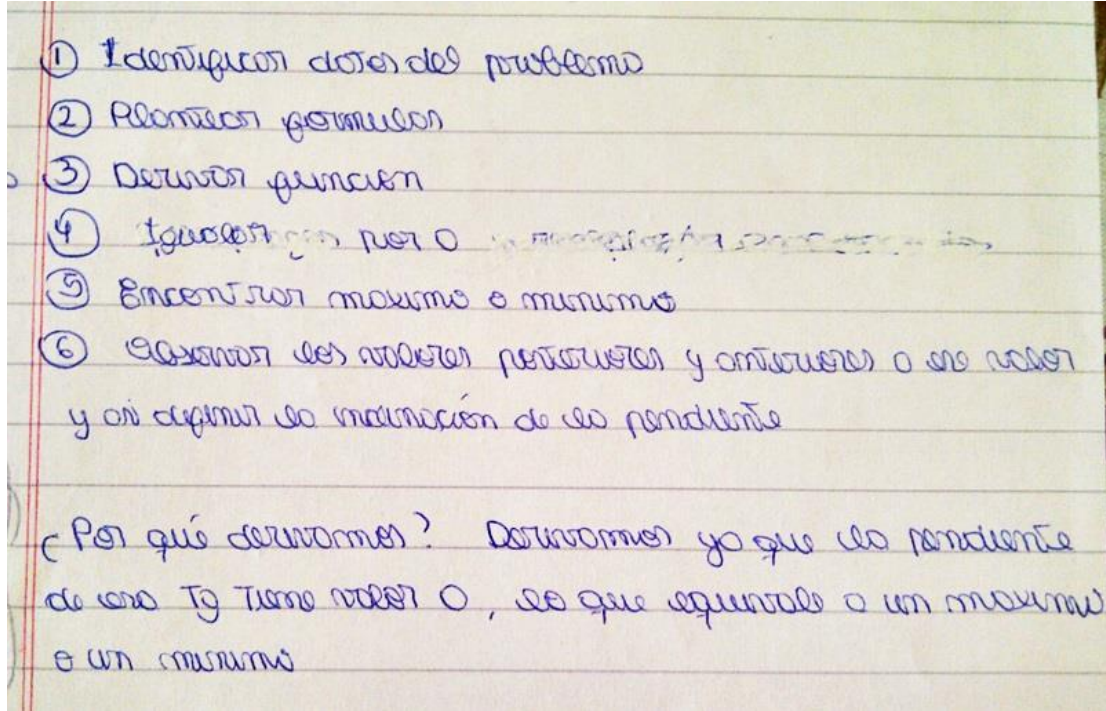 ① Identificar datos del problema
② Plantear formulas
③ Derivar función
④ Igualar por 0
⑤ Encontrar maximo o minimo
⑥ Observar los valores posteriores y anteriores a ese valor
y asi definir la inclinación de la pendiente
¿Por qué derivamos? Derivamos ya que la pendiente
de esa Tg Tiene valor 0, lo que equivale a un maximo
o un minimo